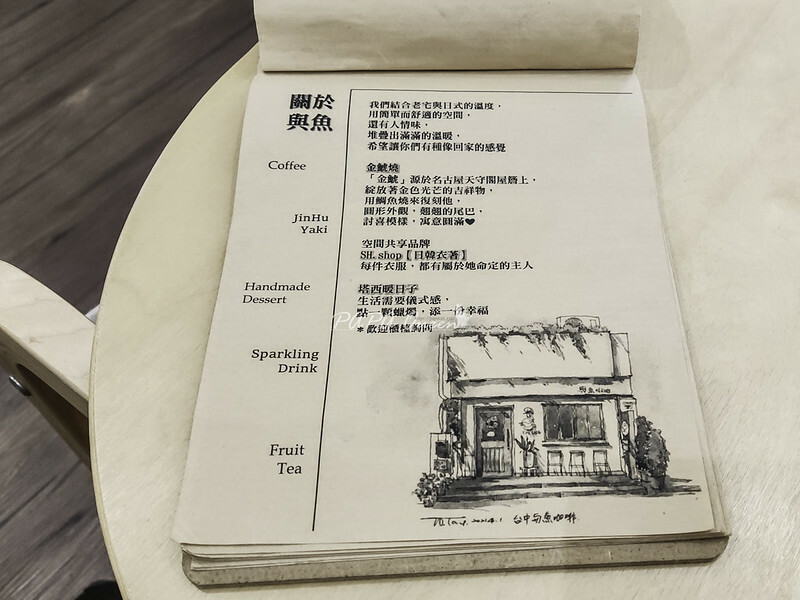 關於
與魚
Coffee
JinHu
Yaki
Handmade
Dessert
Sparkling
Drink
Fruit
Tea
我們結合老宅與日式的溫度，
用簡單而舒適的空間，
還有人情味，
堆疊出滿滿的溫暖，
希望讓你們有種像回家的感覺
金鯱燒
「金鯱」源於名古屋天守閣屋簷上，
綻放著金色光芒的吉祥物，
用鯛魚燒來復刻他，
圓形外觀，翹翹的尾巴，
討喜模樣，寓意圓滿❤
空間共享品牌
SH.shop【日韓衣著】
每件衣服，都有屬於她命定的主人
塔西暖日子
生活需要儀式感，
點一顆蠟燭，添一份幸福
*歡迎櫃檯詢問
與魚咖啡
2021.1 台中与魚咖啡